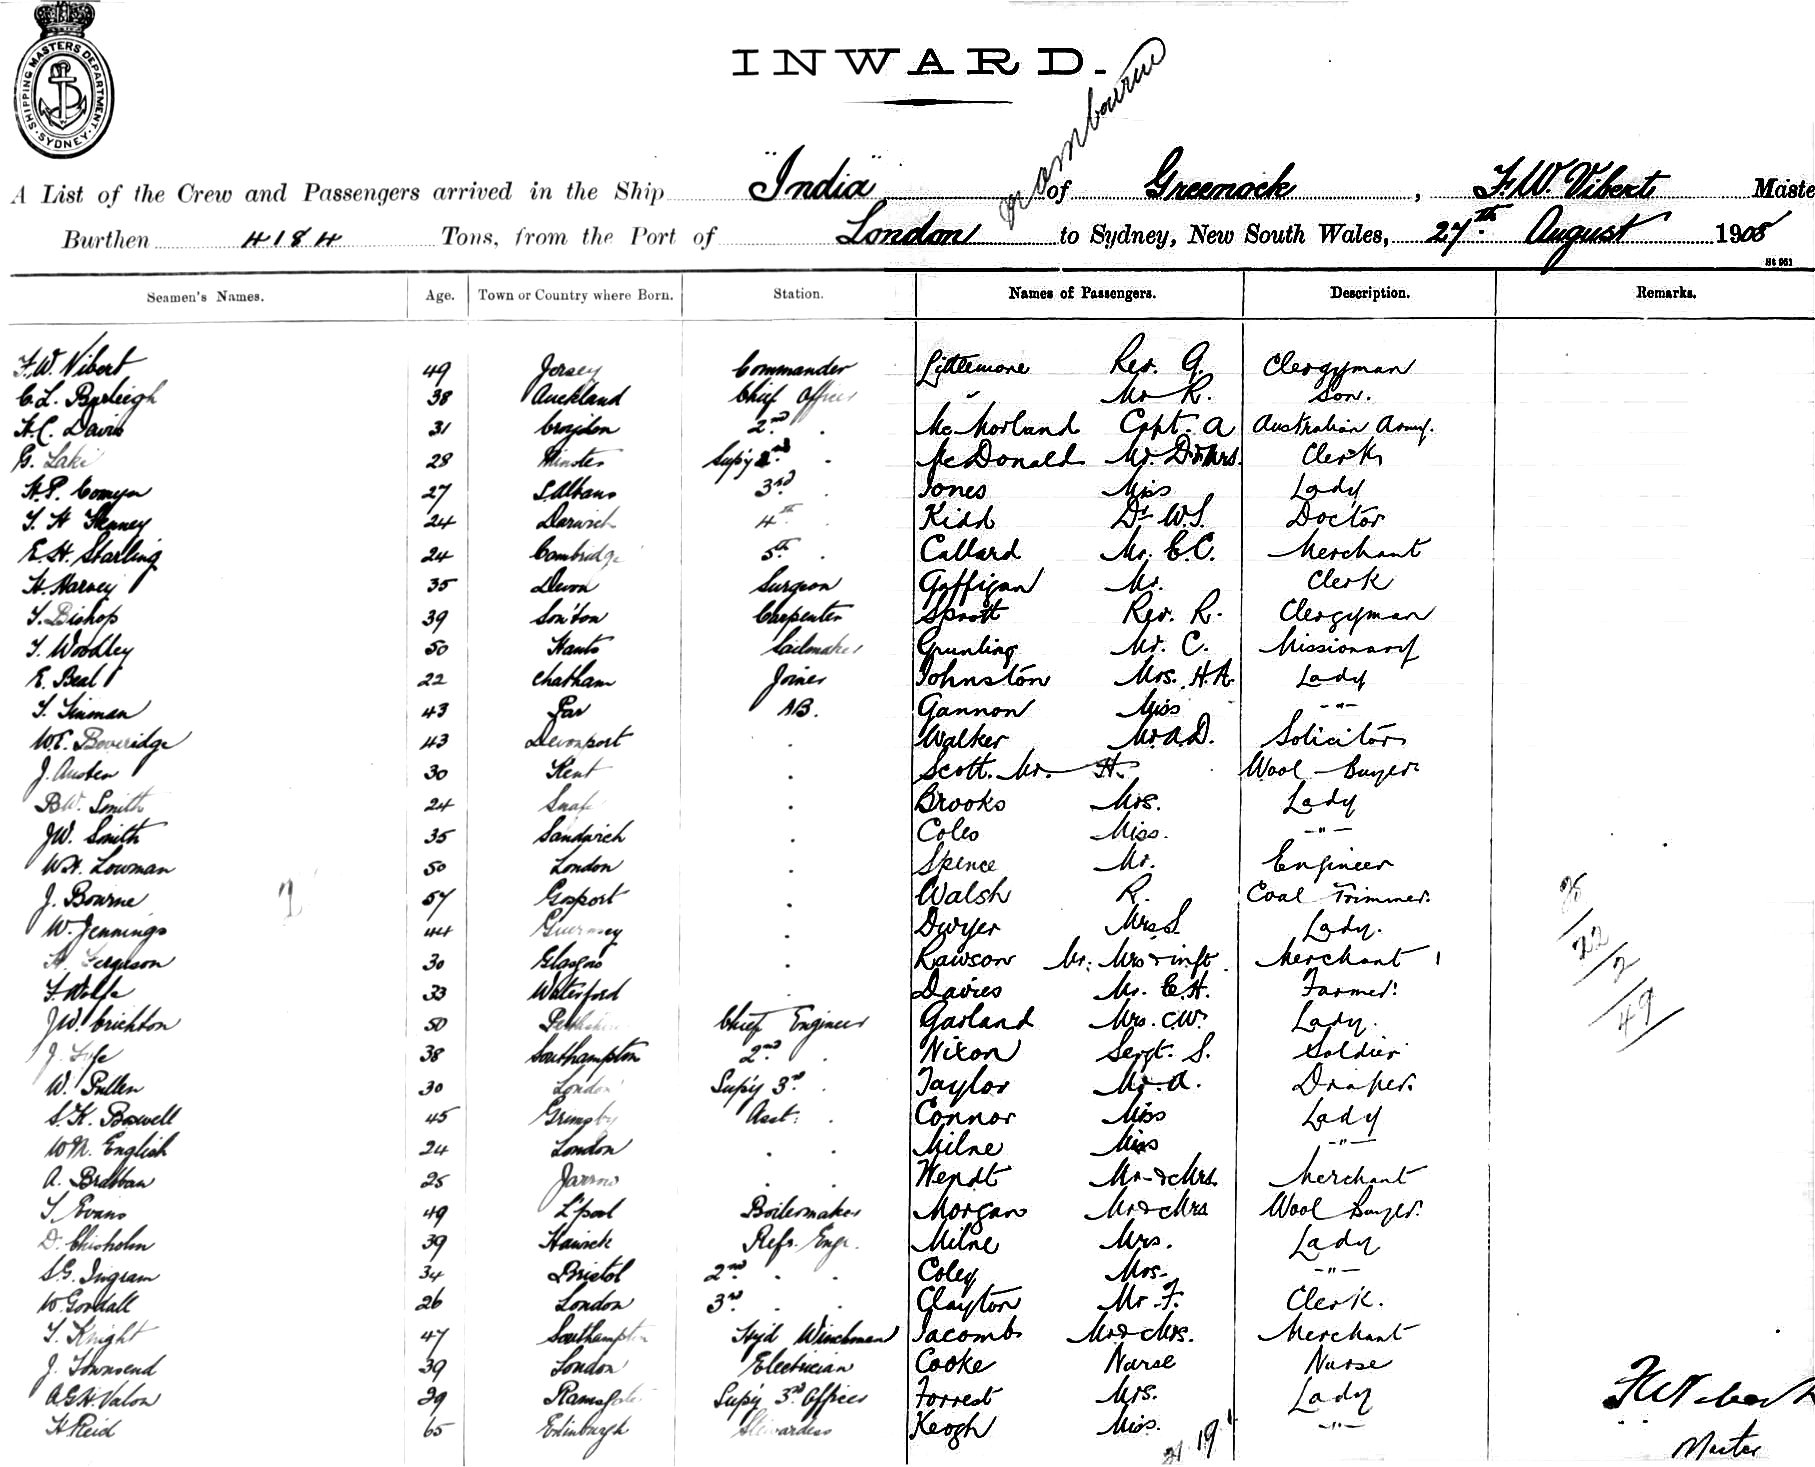 SHIPPING MASTERS DEPARTMENT · SYDNEY ·
INWARD.
A List of the Crew and Passengers arrived in the Ship "India" of Greenock, F.W. Vibert Maste
Burthen 4184 Tons, from the Port of London to Sydney, New South Wales, 27th August 1905
St 951
Seamen's Names. Age. Town or Country where Born. Station. Names of Passengers. Description. Remarks.
F.W. Vibert 49 Jersey Commander Littlemore Rev. G. Clergyman
C.L. Burleigh 38 Auckland Chief Officer " Mr R. Son.
H.C. Davis 31 Croydon 2nd . McMorland Capt. A Australian Army.
G. Lake 28 Minster Sup'y 2nd . McDonald Mr. D & Mrs. Clerk
H.P. Comyn 27 S Albans 3rd . Jones Miss Lady
24 4th Kidd Dr W.S. Doctor
E.H. Starling 24 Cambridge 5th . Callard Mr. E.C. Merchant
H. Harvey 35 Devon Surgeon Goffigan Mr. Clerk
T. Bishop 39 Son'ton Carpenter Sprott Rev. R. Clergyman
T. Woodley 50 Hants Sailmaker Grunling Mr. C. Missionary
E. Beal 22 Chatham Joiner Johnston Mrs. H.A. Lady
43 AB. Gannon Miss -"-
W.E. Boveridge 43 Devonport . Walker Mr A.D. Solicitor
J. Austen 30 Kent . Scott. Mr. H. Wool-Buyer.
B.W. Smith 24 . Brooks Mrs. Lady
J.W. Smith 35 Sandwich . Coles Miss. -"-
W.H. Lowman 50 London . Spence Mr. Engineer
J. Bourne 57 Gosport . Walsh R. Coal Trimmer.
W. Jennings 44 Guernsey . Dwyer Mrs S. Lady.
H. Ferguson 30 Glasgow . Rawson Mr. Mrs & inft. Merchant
F. Wolfe 33 Waterford . Davies Mr. E.H. Farmer.
J.W. Crichton 50 Chief Engineer Garland Mrs. C.W. Lady.
J. Fyfe 38 Southampton 2nd . Nixon Sergt. S. Soldier
W. Pullen 30 London Sup'y 3rd . Taylor Mr. A. Draper.
S.K. Boswell 45 Grimsby Asst. . Connor Miss Lady
W.M. English 24 London . . Milne Miss -"-
A. Brabban 25 Jarrow . . Wendt Mr & Mrs. Merchant
T. Evans 49 L'pool Boilermaker Morgan Mr & Mrs Wool Buyer.
D. Chisholm 39 Hawick Refr. Engr. Milne Mrs. Lady
S.G. Ingram 34 Bristol 2nd . . Coley Mrs. -"-
W. Goodall 26 London 3rd . . Clayton Mr F. Clerk.
T. Knight 47 Southampton Hyd Winchman Jacombs Mr & Mrs. Merchant
J. Townsend 39 London Electrician Cooke Nurse Nurse
A.G.H. Valon 29 Ramsgate Sup'y 3rd Officer Forrest Mrs. Lady
H Reid 65 Edinburgh Stewardess Keogh Miss. -"-
22
2
49
Master